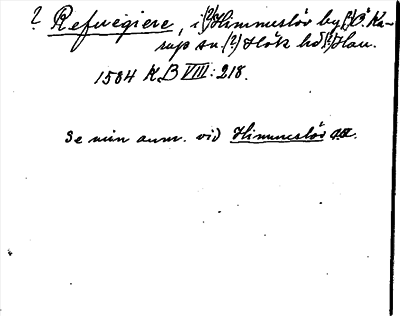 ? Refuegiere, i (?) Himmeslöv by, (?) Ö. Ka-
rup sn. (?) Hök hd (?) Hall.
1584 K.B VIII: 218.
Se min anm. vid Himmeslöv